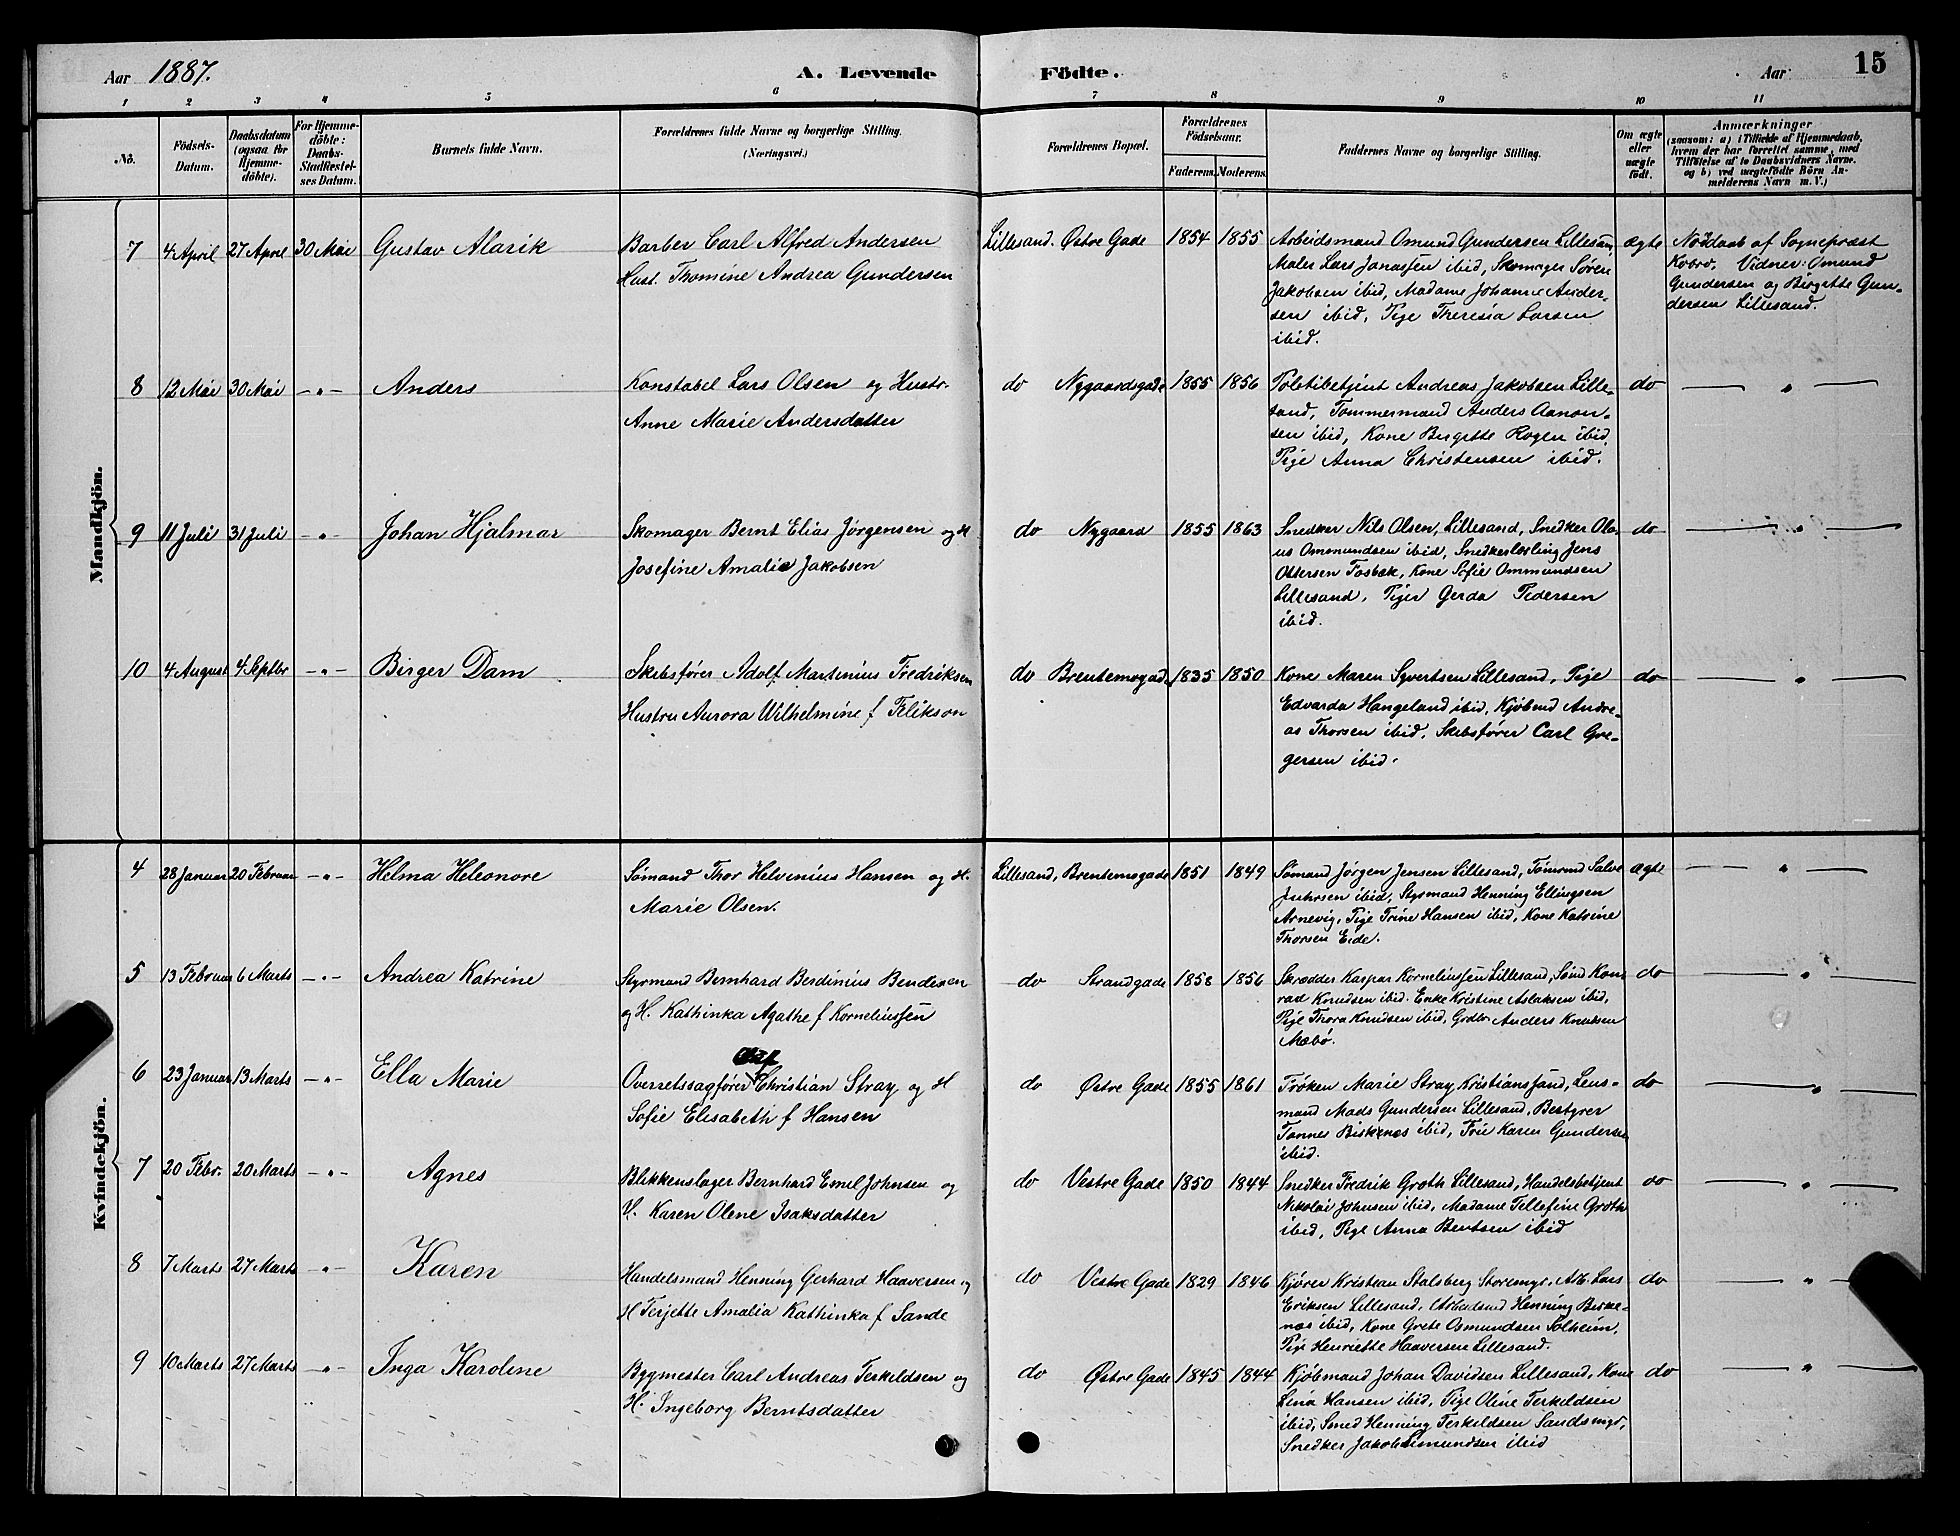 Aar 1887. A. Levende Födte. Aar 15
1 2 3 4 5 6 7 8 9 10 11
No. Födsels-Datum. Daabsdatum (ogsaa for Hjemme-döbte). For Hjemme-döbte: Daabs-Stadfæstel-ses Datum. Barnets fulde Navn. Forældrenes fulde Navne og borgerlige Stilling. (Næringsvei.) Forældrenes Bopæl. Forældrenes Födselsaar. Faderens. Moderens. Faddernes Navne og borgerlige Stilling. Om ægte eller uægte födt. Anmærkninger (saasom: a) i Tilfælde af Hjemmedaab, hvem der har forrettet samme, med Tilföielse af to Daabsvidners Navne. og b) ved uægtefödte Börn An-melderens Navn m. V.)
Mandkjön.
7 4 April 27 April 30 Mai Gustav Alarik Barber Carl Alfred Andersen Lillesand. Østre Gade 1854 1855 Arbeidsmand Omund Gundersen Lillesan, ægte Nøddaab af Sognepræst
Hust. Thomine Andrea Gundersen Maler Lars Janassen ibid, Skomager Søren Vidner: Omund
Jakobsen ibid, Madame Johanne Ander- Gundersen og Birgitte Gun-
sen ibid, Pige Theresia Larsen dersen Lillesand.
ibid.
8 12 Mai 30 Mai -"- Anders Konstabel Lars Olsen og Hustr. do Nygaardsgade 1855 1856 Politibetjent Andreas Jakobsen Lille- do — " —
Anne Marie Andersdatter sand, Tommermand Anders Aanon-
sen ibid, Kone Birgitte Rogen ibid,
Pige Anna Christensen ibid.
9 11 Juli 31 Juli -"- Johan Hjalmar Skomager Bernt Elias Jørgensen og H do Nygaard 1855 1863 Snedker Nils Olsen, Lillesand, Snedker Ola- do — " —
Josefine Amalie Jakobsen us Ommundsen ibid, Snedkerlærling Jens
Ottersen Fosbæk, Kone Sofie Ommundsen
Lillesand, Pige Gerda Pedersen
ibid.
10 4 August 4 Septbr -"- Birger Dam Skibsfører Adolf Martinius Fredriksen do Brentemogad. 1835 1850 Kone Maren Syvertsen Lillesand, Pige do — " —
Hustru Aurora Wilhelmine f Felikson Edvarda Hangeland ibid, Kjøbmd Andre-
as Thorsen ibid. Skibsfører Carl Gre-
gersen ibid.
Kvindekjön.
4 28 Januar 20 Februar -"- Helma Heleonore Sømand Thor Helvinius Hansen og H. Lillesand, Brentemogade 1851 1849 Sømand Jørgen Jensen Lillesand, Tømrmd Salve ægte — " —
Marie Olsen. Juhrsen ibid, Styrmand Henning Ellingsen
Arnevig, Pige Trine Hansen ibid, Kone Katrine
Thorsen Eide.
5 13 Februar 6 Marts -"- Andrea Katrine Styrmand Bernhard Berdinius Bendixen do Strandgade 1858 1856 Skrædder Kaspar Korneliussen Lillesand, Smd Kon- do — " —
og H. Kathinka Agathe f Korneliussen rad Knudsen ibid. Enke Kristine Aslaksen ibid,
Pige Thora Knudsen ibid, Grdbr Anders Knutsen
Mæbø.
6 23 Januar 13 Marts -"- Ella Marie Overretssagfører Olaf Christian Stray og H do Østre Gade 1855 1861 Frøken Marie Stray Kristianssand, Lens- do — " —
Sofie Elisabeth f Hansen mand Mads Gundersen Lillesand, Bestyrer
Tønnes Birkenes ibid, Frue Karen Gundersen
ibid.
7 20 Febr. 20 Marts -"- Agnes Blikkenslager Bernhard Emil Johnsen og do Vestre Gade 1850 1844 Snedker Fredrik Groth Lillesand, Handelsbetjent do — " —
H. Karen Olene Isaksdatter Nikolai Johnsen ibid, Madame Tellefine Groth
ibid, Pige Anna Bentsen ibid
8 7 Marts 27 Marts -"- Karen Handelsmand Henning Gerhard Haaversen og do Vestre Gade 1829 1846 Kjører Kristian Stalsberg Storemyr, Arb. Lars do — " —
H Terjette Amalia Kathinka f Sande Eriksen Lillesand, Arbeidsmd Henning Birke-
nes ibid, Kone Grete Osmundsen Solheim,
Pige Henriette Haaversen Lillesand.
9 10 Marts 27 Marts -"- Inga Karoline Bygmester Carl Andreas Terkildsen og do Østre Gade 1845 1844 Kjøbmand Johan Davidsen Lillesand, Kone do — " —
H. Ingeborg Berntsdatter Lina Hansen ibid, Pige Oline Terkildsen
ibid, Smed Henning Terkildsen Sandsmyr,
Snedker Jakob Simundsen ibid